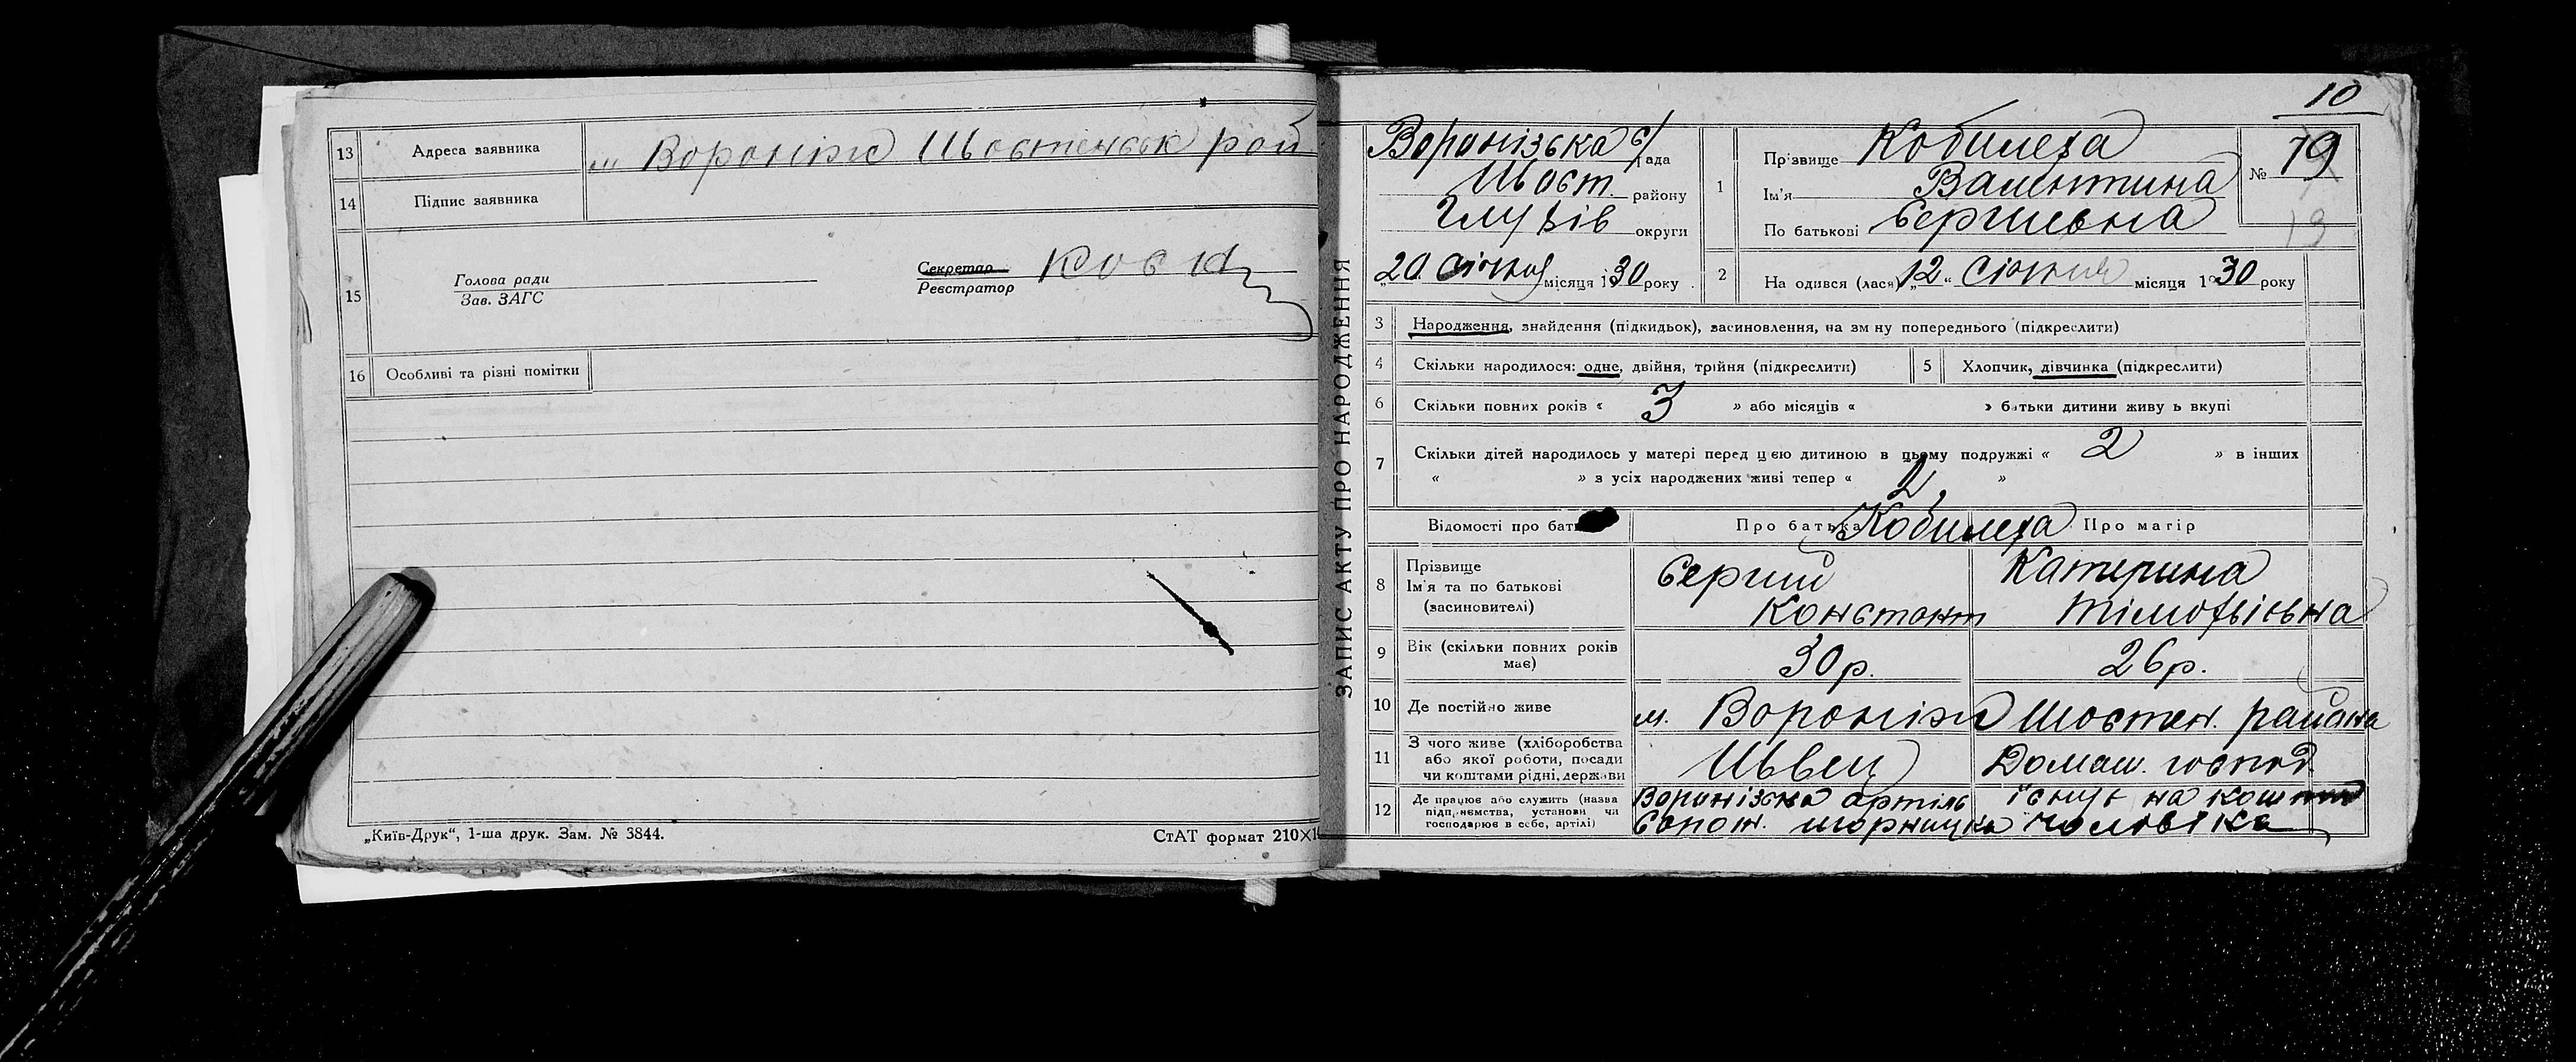 13 Адреса заявника м Вороніж Шостенськ рай
14 Підпис заявника
15 Голова ради
Зав. ЗАГС
Секретар
Реєстратор
16 Особливі та різні помітки
„Київ-Друк“, 1-ша друк. Зам. № 3844.
СтАТ формат 210×1
10
ЗАПИС АКТУ ПРО НАРОДЖЕННЯ
Воронізька с/рада
Шост. району
Глухів округи
„20 січня місяця 1930 року
1 Прізвище Кобилеха
Ім'я Валентина
По батькові Сергиевна
№ 79
19
2 На одився (лася) „12“ Січня місяця 1930 року
3 Народження, знайдення (підкидьок), засиновлення, на зм ну попереднього (підкреслити)
4 Скільки народилося: одне, двійня, трійня (підкреслити)
5 Хлопчик, дівчинка (підкреслити)
6 Скільки повних років « 3 » або місяців « » батьки дитини живу ь вкупі
7 Скільки дітей народилось у матері перед цею дитиною в цьому подружжі « 2 » в інших
« » з усіх народжених живі тепер « 2, »
Відомості про бать Про батька Кобилеха Про матір
8 Прізвище
Ім'я та по батькові
(засиновителі)
Сергий
Констант
Катерина
Тімофьієвна
9 Вік (скільки повних років має) 30 р. 26 р.
10 Де постійно живе м. Вороніж Шостен. района
11 З чого живе (хліборобства
або якої роботи, посади
чи коштами рідні, держави
Швец
Домаш. господ.
12 Де працює або служить (назва
підприємства, установи чи
господарює в себе, артілі)
Воронізька артіль
Сапож. шорницка
існує на кошти
чоловіка